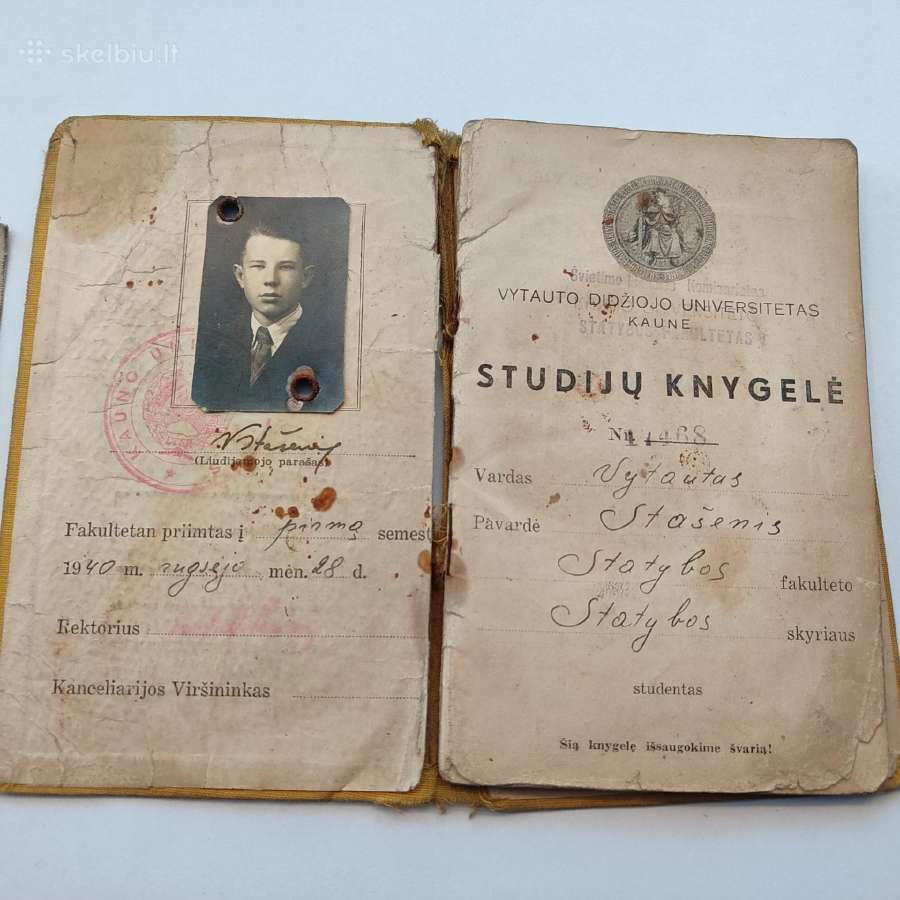 skelbiu.lt
V Stašenis
(Liudijamojo parašas)
Fakultetan priimtas į pirmą semest
1940 m. rugsėjo mėn. 28 d.
Rektorius
Kanceliarijos Viršininkas
Švietimo Komisariatas
VYTAUTO DIDŽIOJO UNIVERSITETAS
KAUNE
STATYBOS FAKULTETAS
STUDIJŲ KNYGELĖ
Nr. 1468
Vardas Vytautas
Pavardė Stašenis
Statybos fakulteto
Statybos skyriaus
studentas
Šią knygelę išsaugokime švarią!